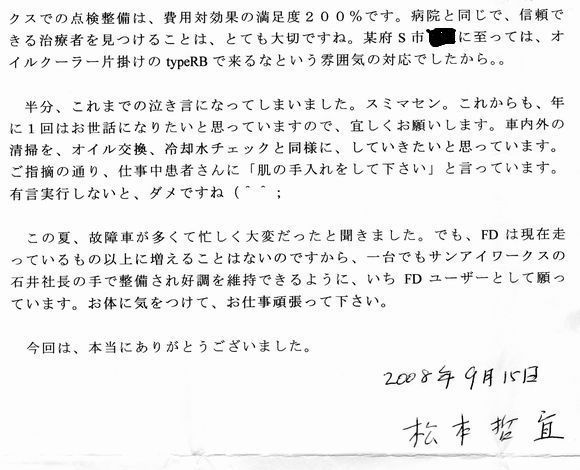 クスでの点検整備は、費用対効果の満足度２００％です。病院と同じで、信頼で
きる治療者を見つけることは、とても大切ですね。某府 S 市 に至っては、オ
イルクーラー片掛けの typeRB で来るなという雰囲気の対応でしたから。。
半分、これまでの泣き言になってしまいました。スミマセン。これからも、年
に１回はお世話になりたいと思っていますので、宜しくお願いします。車内外の
清掃を、オイル交換、冷却水チェックと同様に、していきたいと思っています。
ご指摘の通り、仕事中患者さんに「肌の手入れをして下さい」と言っています。
有言実行しないと、ダメですね（＾＾；
この夏、故障車が多くて忙しく大変だったと聞きました。でも、FD は現在走
っているもの以上に増えることはないのですから、一台でもサンアイワークスの
石井社長の手で整備され好調を維持できるように、いち FD ユーザーとして願っ
ています。お体に気をつけて、お仕事頑張って下さい。
今回は、本当にありがとうございました。
2008年9月15日
松本哲宜